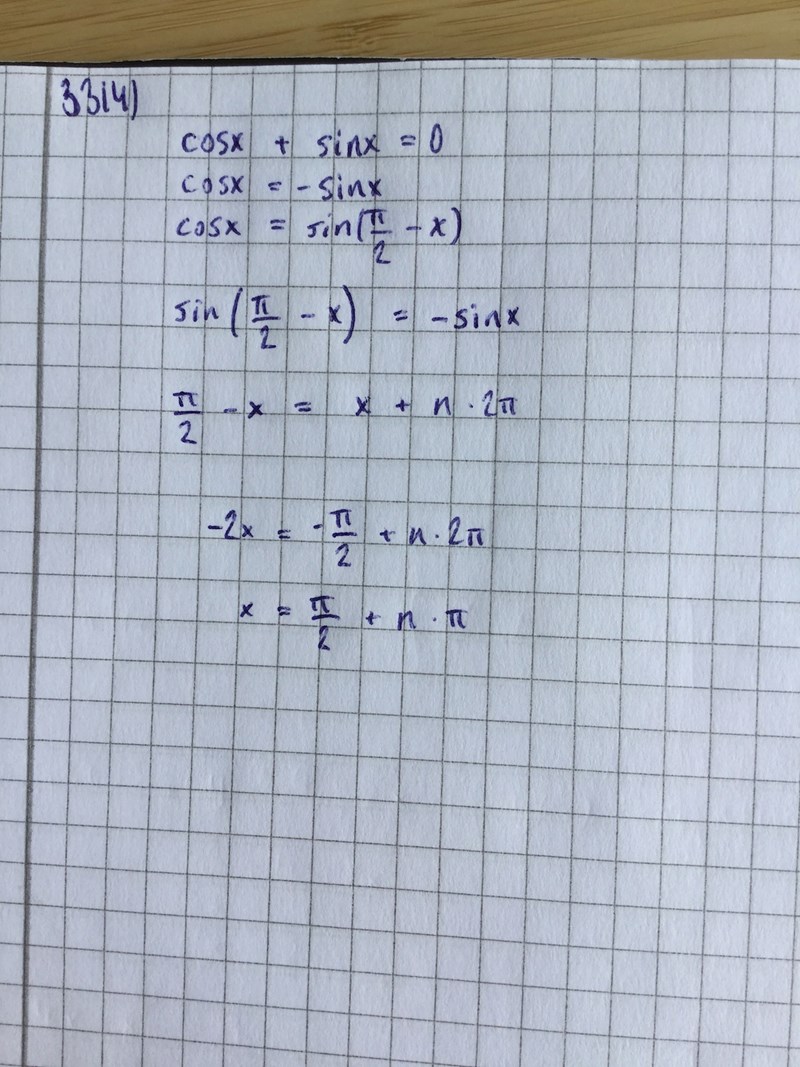 3314)
cosx + sinx = 0
cosx = -sinx
cosx = sin(π/2 - x)
sin(π/2 - x) = -sinx
π/2 - x = x + n · 2π
-2x = -π/2 + n · 2π
x = π/2 + n · π